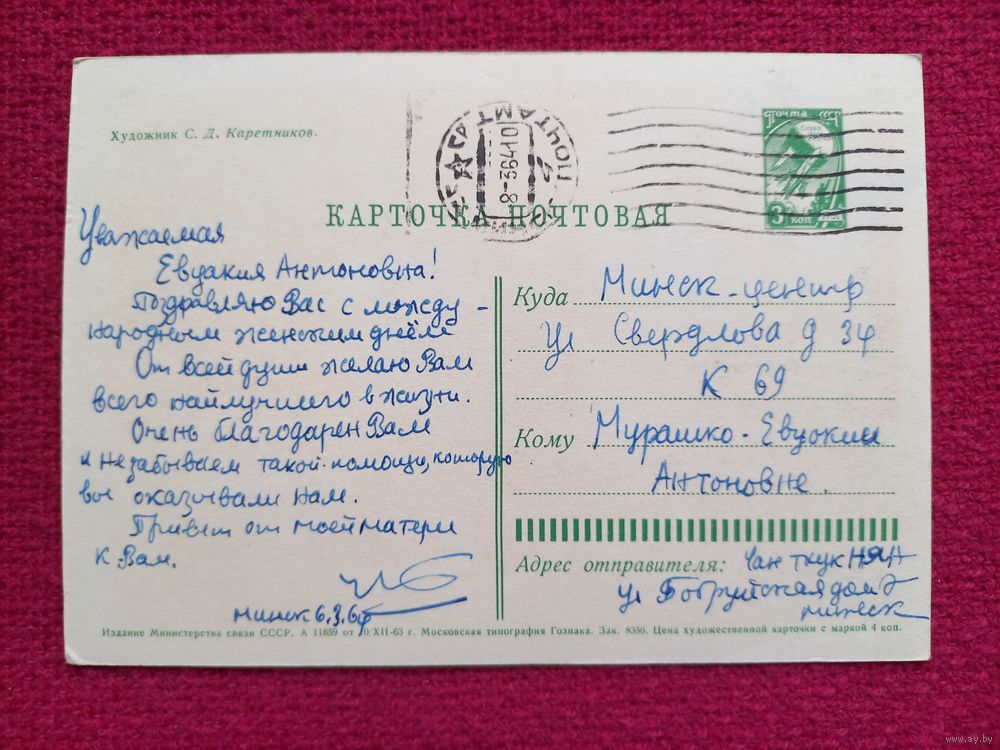 Художник С. Д. Каретников.
ПОЧТАМТ
8-36410
ПОЧТА СССР
3 КОП
КАРТОЧКА ПОЧТОВАЯ
Уважаемая
Евдакия Антоновна!
Поздравляю Вас с между-
народным женским днём
От всей души желаю Вам
всего наилучшего в жизни.
Очень благодарен Вам
и незабываем такой помощи, которую
вы оказывали нам.
Привет от моей матери
к Вам.
Минск 6.3.64
Куда Минск-центр
ул Свердлова д 34
К 69
Кому Мурашко-Евдокии
Антоновне.
Адрес отправителя: Чан тхук НЯН
ул Бобруйская дом
Минск
Издание Министерства связи СССР. А 11859 от 10/XII-63 г. Московская типография Гознака. Зак. 8356. Цена художественной карточки с маркой 4 коп.
www.ay.by